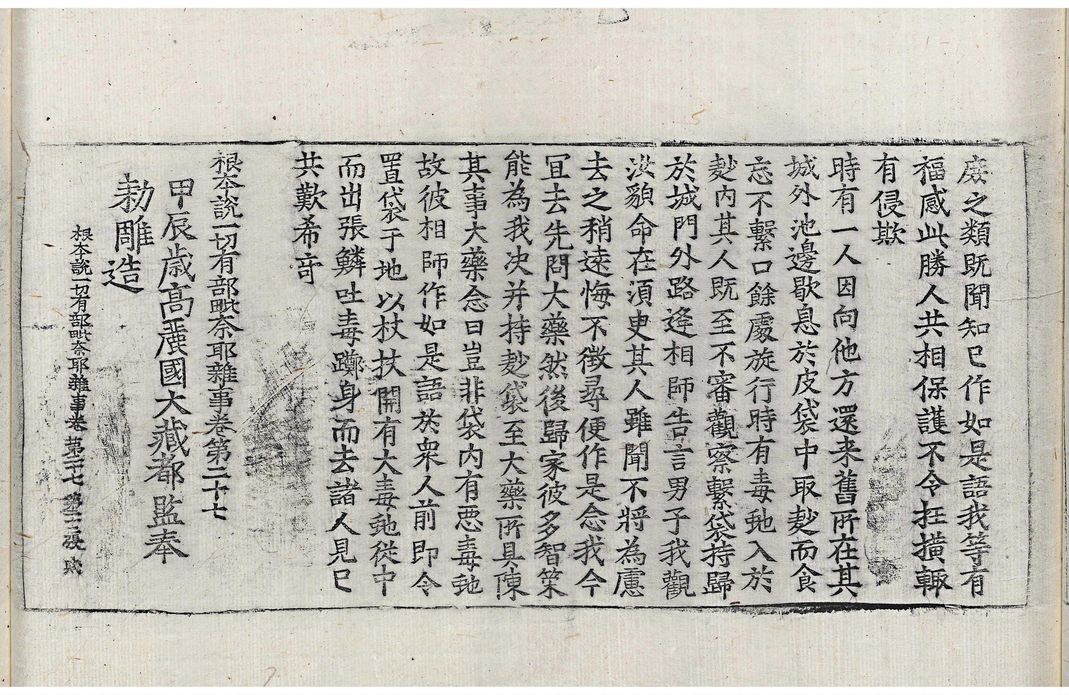 廢之類既聞知已作如是語我等有
福感此勝人共相保護不令抂撗輙
有侵欺
時有一人因向他方還来舊所在其
城外池邊歇息於皮袋中取麨而食
忘不繫口餘處旋行時有毒虵入於
麨内其人既至不審觀察繫袋持歸
於城門外路逢相師告言男子我觀
汝䫉命在湏史其人雖聞不將為慮
去之稍逺悔不徵尋便作是念我今
冝去先問大藥然後歸家彼多智策
能為我决并持麨袋至大藥所具陳
其事大藥念曰豈非袋内有惡毒虵
故彼相師作如是語於衆人前即令
置袋于地以杖扶開有大毒虵從中
而出張鱗吐毒躑身而去諸人見已
共歎希竒
根本說一切有部毗奈耶雜事卷第二十七
甲辰歳高麗國大藏都監奉
勅雕造
根本說一切有部毗奈耶雜事卷第二十七 張